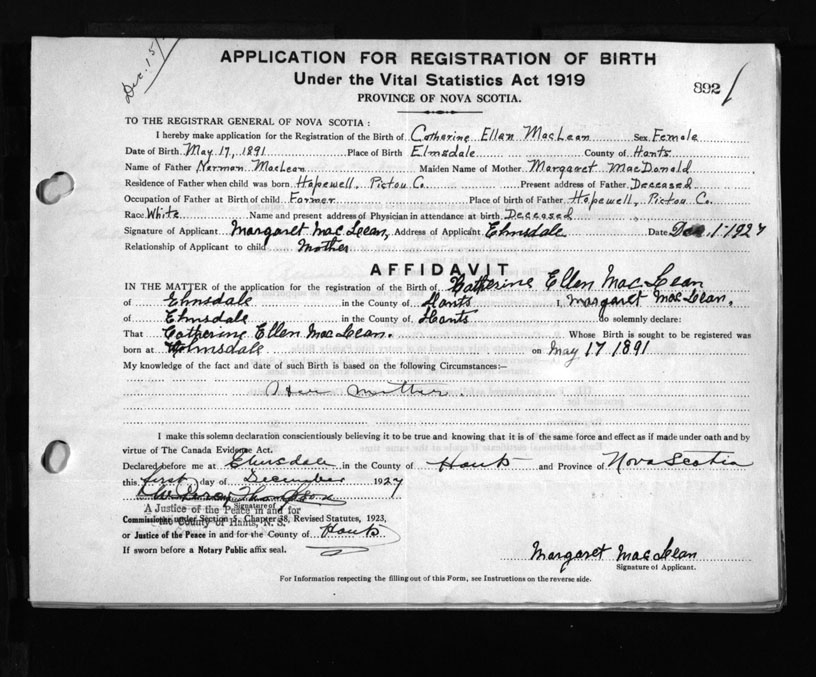 Dec. 15/
APPLICATION FOR REGISTRATION OF BIRTH
Under the Vital Statistics Act 1919
PROVINCE OF NOVA SCOTIA.
892
TO THE REGISTRAR GENERAL OF NOVA SCOTIA:
I hereby make application for the Registration of the Birth of Catharine Ellan MacLean Sex Female
Date of Birth May 17, 1891 Place of Birth Elmsdale County of Hants
Name of Father Norman MacLean Maiden Name of Mother Margaret MacDonald
Residence of Father when child was born Hopewell, Pictou Co. Present address of Father Deceased
Occupation of Father at Birth of child Farmer Place of birth of Father Hopewell, Pictou Co.
Race White Name and present address of Physician in attendance at birth Deceased
Signature of Applicant Margaret MacLean, Address of Applicant Elmsdale Date Dec 1-1927
Relationship of Applicant to child Mother
AFFIDAVIT
IN THE MATTER of the application for the registration of the Birth of Catherine Ellen MacLean
of Elmsdale in the County of Hants I, Margaret MacLean.
of Elmsdale in the County of Hants do solemnly declare:
That Catherine Ellen MacLean. Whose Birth is sought to be registered was
born at Elmsdale on May 17 1891
My knowledge of the fact and date of such Birth is based on the following Circumstances:—
Her mother.
I make this solemn declaration conscientiously believing it to be true and knowing that it is of the same force and effect as if made under oath and by
virtue of The Canada Evidence Act.
Declared before me at Elmsdale in the County of Hants and Province of Nova Scotia
this first day of December 1927
Signature of
A Justice of the Peace in and for
the County of Hants, N. S.
Commissioner under Section 5, Chapter 38, Revised Statutes, 1923,
or Justice of the Peace in and for the County of Hants
If sworn before a Notary Public affix seal.
Margaret MacLean
Signature of Applicant.
For Information respecting the filling out of this Form, see Instructions on the reverse side.